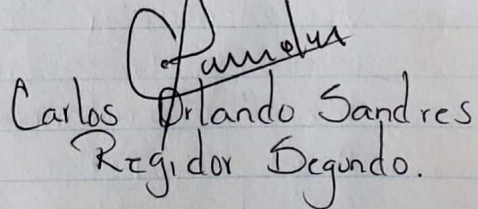 Carlos Orlando Sandres
Regidor Segundo.